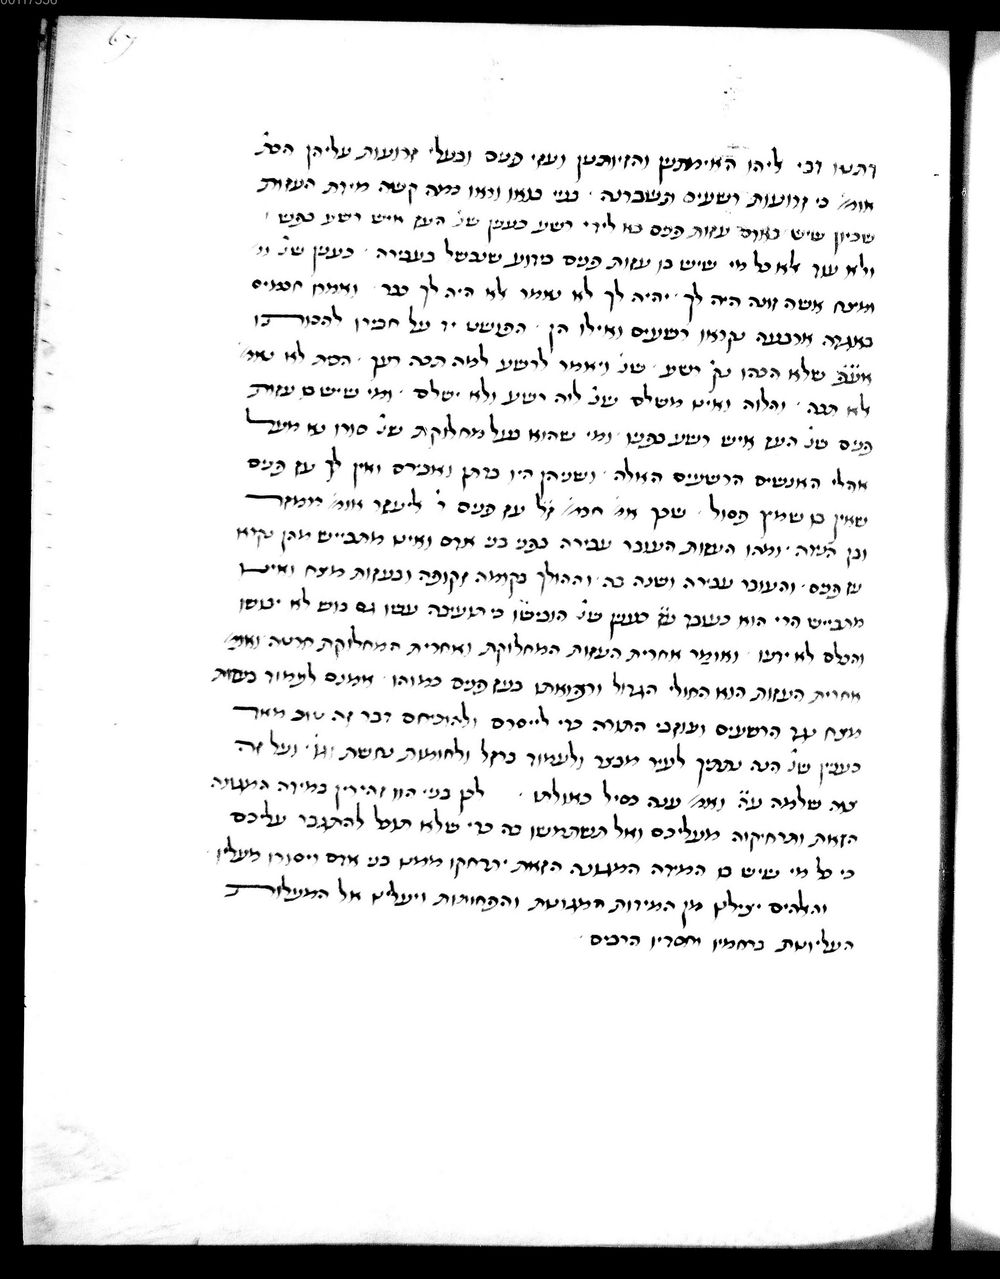 67
דתנו רבי ליהו האימתנין והזיותנין ועזי פנים ובעלי זרועות עליהן הכת׳
אומ׳ כי זרועות רשעים תשברנה · בני בואו וראו כמה קשה מידת העזות
שכיון שיש באדם עזות פנים בא לידי רשע כענין שנ׳ העז איש רשע בפניו ·
ולא עוד אלא כל מי שיש בו עזות פנים בידוע שנכשל בעבירה · כענין שנ׳ ומ׳
ומצח אשה זונה היה לך · יהיה לך לא נאמר אלא היה לך כבר · ואמרו חכמים
באגדה ארבעה נקראו רשעים ואילו הן · הפושט יד על חבירו להכותו
אע״פ שלא הכהו נק׳ רשע · שנ׳ ויאמר לרשע למה תכה רעך · הכית לא נאמ׳
אלא תכה · והלוה ואינו משלם שנ׳ לוה רשע ולא ישלם · ומי שיש בו עזות
פנים שנ׳ העז איש רשע בפניו · ומי שהוא בעל מחלוקת שנ׳ סורו נא מעל
אהלי האנשים הרשעים האלה · ושניהן היו בדתן ואבירם ואין לך עז פנים
שאין בו שמץ פסול · שכך אמ׳ חכמ׳ ז״ל עז פנים ר׳ ליעזר אומ׳ ממזר
ובן הנדה · ומהו העזות העובר עבירה בפני בני אדם ואינו מתבייש מהן נקרא
עז פנים · והעובר עבירה ושונה בה · וההולך בקומה זקופה ובעזות מצח ואינו
מתבייש הרי הוא כעובד ע״ז כענין שנ׳ הובישו כי תועיבה עשו גם בוש לא יבושו
והכלם לא ידעו · ואומר אחרית העזות המחלוקת ואחרית המחלוקת חרטה ואומ׳
אחרית העזות הוא החולי הגדול ורפואתו בעז פנים כמוהו · אמנם לעמוד בעזות
מצח נגד הרשעים ועוזבי התורה כדי לייסרם ולהוכיחם דבר זה טוב מאד
כענין שנ׳ הנה נתתיך לעיר מבצר ולעמוד ברזל ולחומות נחשת וגו׳ · ועל זה
צוה שלמה ע״ה ואמ׳ ענה כסיל כאולתו · לכן בני הוו זהירין במידה המגונה
הזאת ותרחיקוה מעליכם ואל תשתמשו בה כדי שלא תוכל להתגבר עליכם
כי כל מי שיש בו המידה המגונה הזאת יתרחקו ממנו בני אדם ויסורו מעליו ·
והאלהים יצילנו מן המידות המגונות והפחותות ויעלינו אל המעלות
העליונות ברחמיו וחסדיו הרבים ·